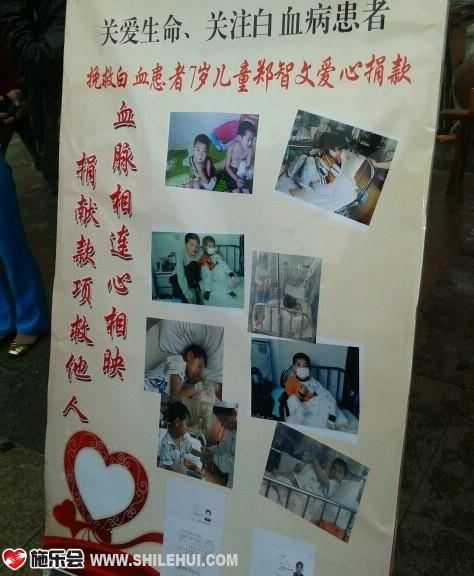 关爱生命、关注白血病患者
挽救白血患者7岁儿童郑智文爱心捐款
血脉相连心相映
捐献款项救他人
施乐会 WWW.SHILEHUI.COM